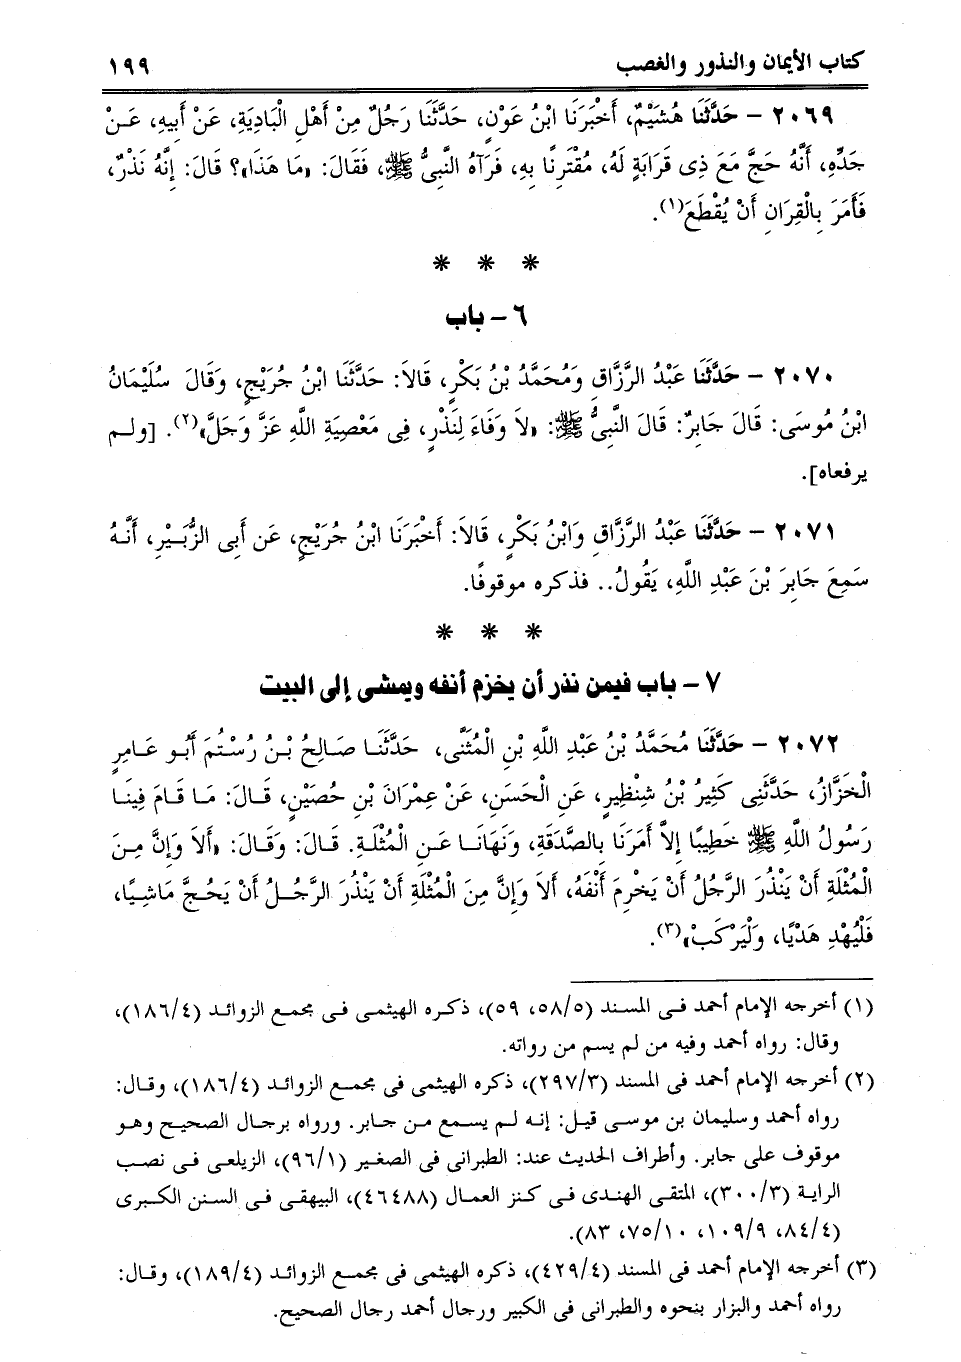 كتاب الأيمان والنذور والغصب ١٩٩
٢٠٦٩ – حَدَّثَنَا هُشَيْمٌ، أَخْبَرَنَا ابْنُ عَوْنٍ، حَدَّثَنَا رَجُلٌ مِنْ أَهْلِ الْبَادِيَةِ، عَنْ أَبِيهِ، عَنْ
جَدِّهِ، أَنَّهُ حَجَّ مَعَ ذِى قَرَابَةٍ لَهُ، مُقْتَرِنًا بِهِ، فَرَآهُ النَّبِىُّ ﷺ، فَقَالَ: «مَا هَذَا»؟ قَالَ: إِنَّهُ نَذْرٌ،
فَأَمَرَ بِالْقِرَانِ أَنْ يُقْطَعَ(١).
* * *
٦ – باب
٢٠٧٠ – حَدَّثَنَا عَبْدُ الرَّزَّاقِ وَمُحَمَّدُ بْنُ بَكْرٍ، قَالاَ: حَدَّثَنَا ابْنُ جُرَيْجٍ، وَقَالَ سُلَيْمَانُ
ابْنُ مُوسَى: قَالَ جَابِرٌ: قَالَ النَّبِىُّ ﷺ: «لاَ وَفَاءَ لِنَذْرٍ، فِى مَعْصِيَةِ اللَّهِ عَزَّ وَجَلَّ»(٢). [ولم
يرفعاه].
٢٠٧١ – حَدَّثَنَا عَبْدُ الرَّزَّاقِ وَابْنُ بَكْرٍ، قَالاَ: أَخْبَرَنَا ابْنُ جُرَيْجٍ، عَن أَبِى الزُّبَيْرِ، أَنَّهُ
سَمِعَ جَابِرَ بْنَ عَبْدِ اللَّهِ، يَقُولُ.. فذكره موقوفًا.
* * *
٧ – باب فيمن نذر أن يخزم أنفه ويمشى إلى البيت
٢٠٧٢ – حَدَّثَنَا مُحَمَّدُ بْنُ عَبْدِ اللَّهِ بْنِ الْمُثَنَّى، حَدَّثَنَا صَالِحُ بْنُ رُسْتُمَ أَبُو عَامِرٍ
الْخَزَّازُ، حَدَّثَنِى كَثِيرُ بْنُ شِنْظِيرٍ، عَنِ الْحَسَنِ، عَنْ عِمْرَانَ بْنِ حُصَيْنٍ، قَالَ: مَا قَامَ فِينَا
رَسُولُ اللَّهِ ﷺ خَطِيبًا إِلاَّ أَمَرَنَا بِالصَّدَقَةِ، وَنَهَانَا عَنِ الْمُثْلَةِ. قَالَ: وَقَالَ: «أَلاَ وَإِنَّ مِنَ
الْمُثْلَةِ أَنْ يَنْذُرَ الرَّجُلُ أَنْ يَخْرِمَ أَنْفَهُ، أَلاَ وَإِنَّ مِنَ الْمُثْلَةِ أَنْ يَنْذُرَ الرَّجُلُ أَنْ يَحُجَّ مَاشِيًا،
فَلْيُهْدِ هَدْيًا، وَلْيَرْكَبْ»(٣).
(١) أخرجه الإمام أحمد فى المسند (٥٨/٥، ٥٩)، ذكره الهيثمى فى مجمع الزوائد (١٨٦/٤)،
وقال: رواه أحمد وفيه من لم يسم من رواته.
(٢) أخرجه الإمام أحمد فى المسند (٢٩٧/٣)، ذكره الهيثمى فى مجمع الزوائد (١٨٦/٤)، وقال:
رواه أحمد وسليمان بن موسى قيل: إنه لم يسمع من جابر. ورواه برجال الصحيح وهو
موقوف على جابر. وأطراف الحديث عند: الطبرانى فى الصغير (٩٦/١)، الزيلعى فى نصب
الراية (٣٠٠/٣)، المتقى الهندى فى كنز العمال (٤٦٤٨٨)، البيهقى فى السنن الكبرى
(٨٤/٤، ١٠٩/٩، ٧٥/١٠، ٨٣).
(٣) أخرجه الإمام أحمد فى المسند (٤٢٩/٤)، ذكره الهيثمى فى مجمع الزوائد (١٨٩/٤)، وقال:
رواه أحمد والبزار بنحوه والطبرانى فى الكبير ورجال أحمد رجال الصحيح.